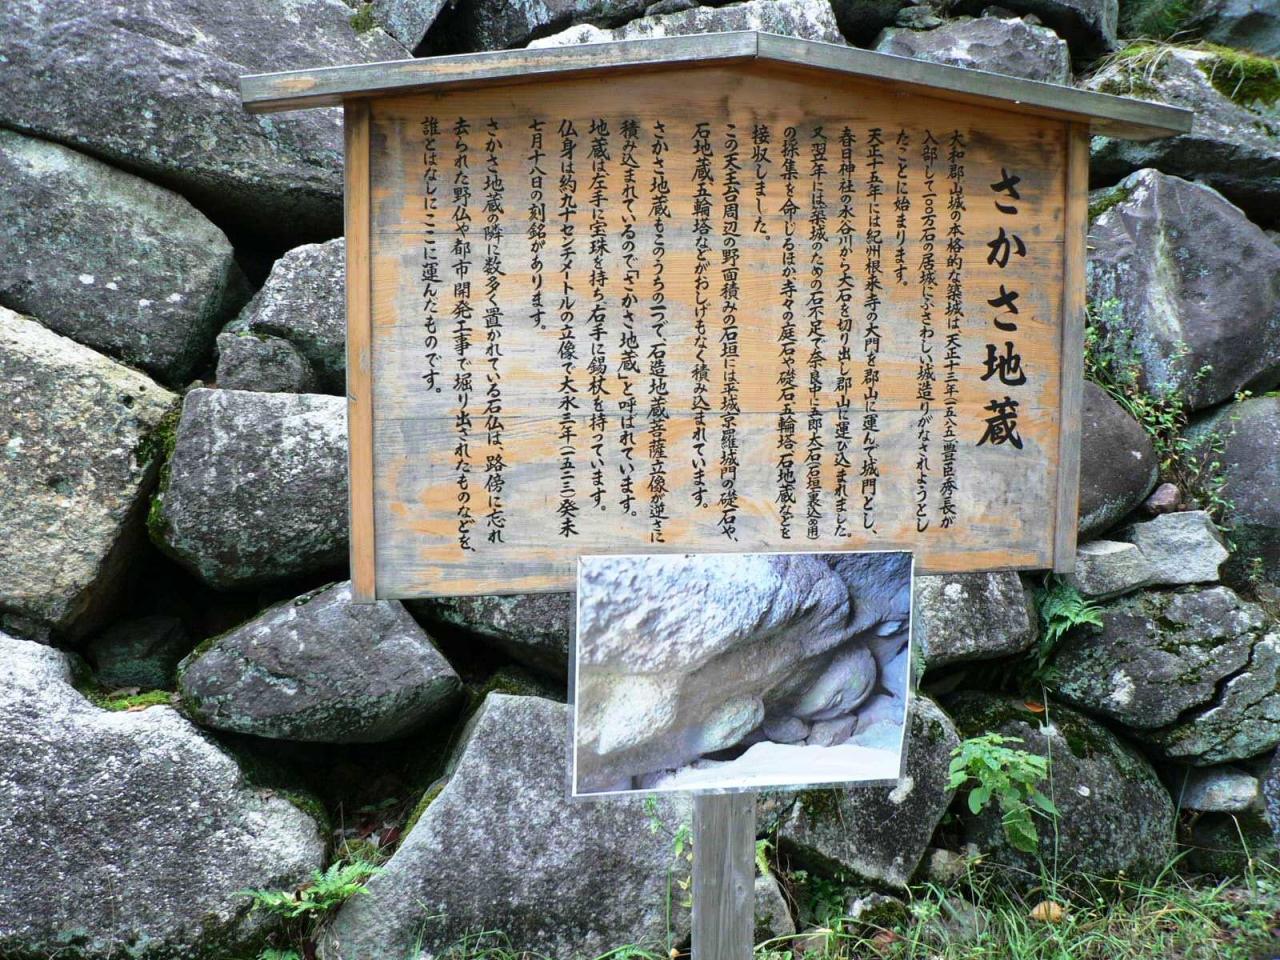 さかさ地蔵
大和郡山城の本格的な築城は、天正十三年(一五八五)豊臣秀長が
入部して一〇〇万石の居城にふさわしい城造りがなされようとし
たことに始まります。
天正十五年には紀州根来寺の大門を郡山に運んで城門とし、
春日神社の水谷川から大石を切り出し郡山に運び込まれました。
又翌年には築城のための石不足で奈良中に五郎太石(石垣の裏込め用)
の採集を命じるほか、寺々の庭石や礎石、五輪塔、石地蔵などを
接収しました。
この天守台周辺の野面積みの石垣には平城京羅城門の礎石や、
石地蔵、五輪塔などがおしげもなく積み込まれています。
さかさ地蔵もこのうちの一つで、石造地蔵菩薩立像が逆さに
積み込まれているので「さかさ地蔵」と呼ばれています。
地蔵は左手に宝珠を持ち、右手に錫杖を持っています。
仏身は約九十センチメートルの立像で大永三年(一五二三)癸未
七月十八日の刻銘があります。
さかさ地蔵の隣に数多く置かれている石仏は、路傍に忘れ
去られた野仏や都市開発工事で堀り出されたものなどを、
誰とはなしにここに運んだものです。